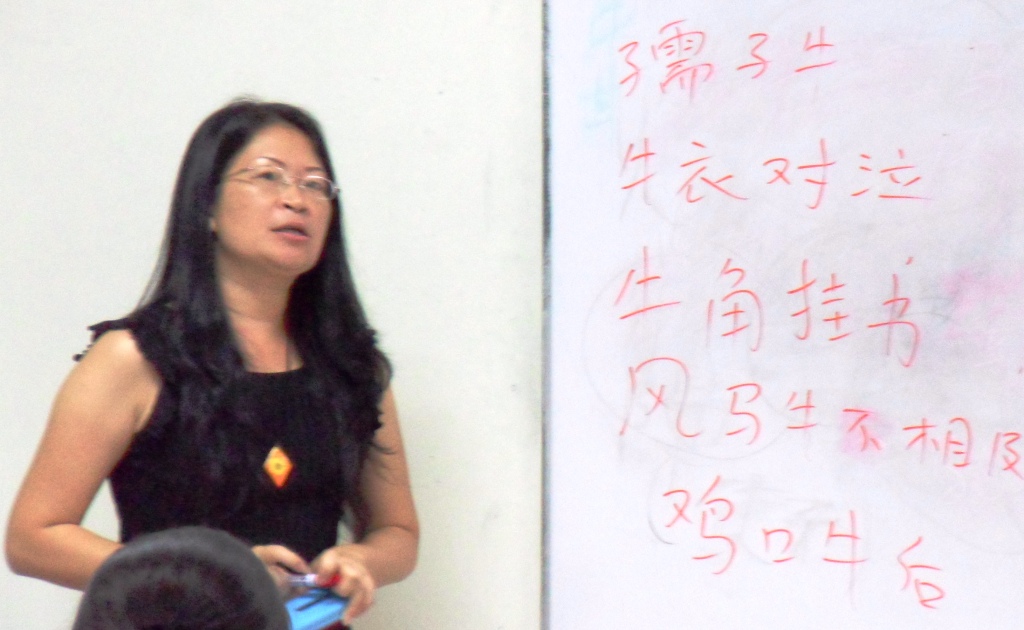 孺子牛
牛衣对泣
牛角挂书
风马牛不相及
鸡口牛后